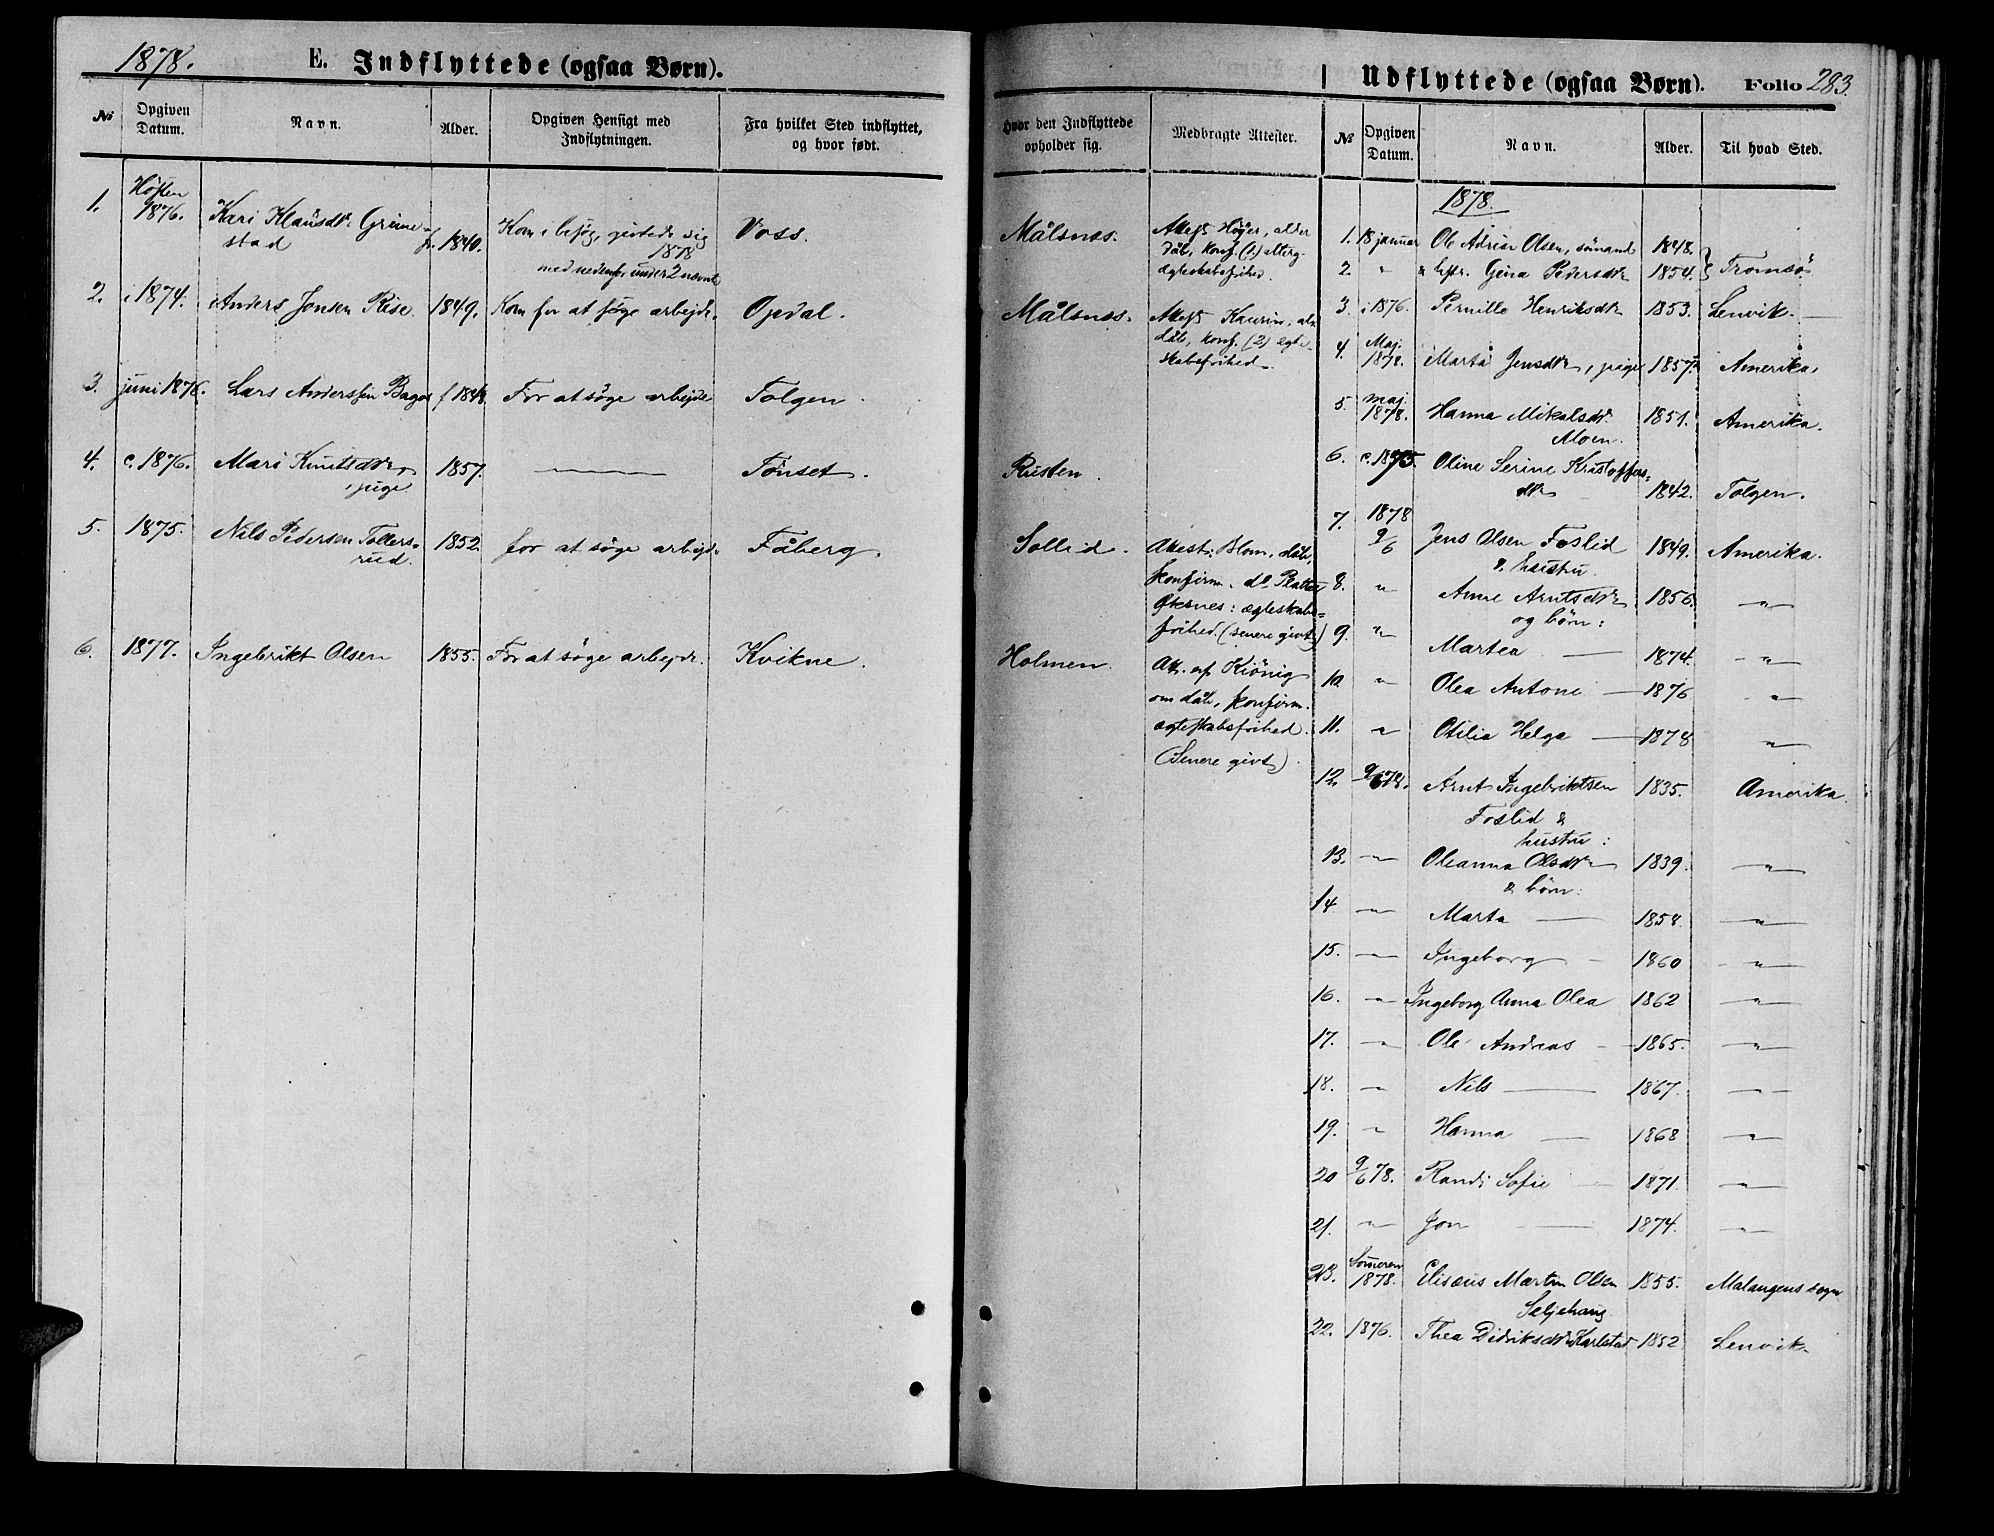 1878.
E. Indflyttede (ogsaa Børn).
№ | Opgiven Datum. | Navn. | Alder. | Opgiven Hensigt med Indflytningen. | Fra hvilket Sted indflyttet, og hvor født.
1. Høsten 1876. Kari Klausdtr Grimestad f. 1840. Kom i besøg, giftede sig 1878 med nedenfor under 2 nævnte Voss.
2. i 1874. Anders Jonsen Rise 1849. Kom for at søge arbejde. Opdal.
3. juni 1876. Lars Anderssen f 1848. For at søge arbejde Tolgen.
4. c. 1876. Mari Knutsdtr, pige 1857. — Tønset.
5. 1875. Nils Pedersen Tollersrud. 1852 for at søge arbejde Fåberg.
6. 1877. Ingebrikt Olsen 1855. For at søge arbejde. Kvikne.
Hvor den Indflyttede opholder sig. | Medbragte Attester.
Målsnes. Attest Høyer, alder dåb, konf. (1) alterg. ægteskabsfrihed.
Målsnes. Attest Kaurin, ald. dåb, konf. (2) egteskabsfrihed.
Rusten.
Sollid. Attest: Blom, dåb, konfirm. do ægteskabsfrihed. (senere givt)
Holmen. Att. af Kiönig om dåb, konfirm. ægteskabsfrihed. (Senere givt)
Udflyttede (ogsaa Børn). Folio 283.
№ | Opgiven Datum. | Navn. | Alder. | Til hvad Sted.
1878.
1. 18 januar Ole Adrian Olsen, sömand 1848. } Tromsö
2. " & hstr. Gina Pedersdtr 1854.
3. i 1876. Pernille Henriksdtr 1853. Lenvik.
4. Maj. 1878. Marta Jensdtr, pige 1857. Amerika.
5. maj. 1878. Hanna Mikalsdtr Moen. 1851. Amerika.
6. c. 1875. Oline Serine Kristoffersdtr 1842. Tolgen.
7. 1878 9/6 Jens Olsen Foslid & hustru. 1849. Amerika.
8. " Anne Arntsdtr og børn: 1856. "
9. " Martea — 1874. "
10. " Olea Antone — 1876 "
11. " Otilia Helga — 1878 "
12. 9/6 78. Arnt Ingebriktsen Foslid & hustru: 1835. Amerika.
13. " Oleanna Olsdtr & børn: 1839. "
14 " Marta — 1858. "
15. " Ingeborg — 1860 "
16. " Ingeborg Anna Olea 1862 "
17. " Ole Andreas — 1865. "
18. " Nils — 1867. "
19. " Hanna — 1868 "
20 9/6 78. Randi Sofie — 1871. "
21. " Jon — 1874. "
23. Sommeren 1878. Elisæus Martin Olsen Seljehaug. 1855. Malangens sogn
22. 1876. Thea Didriksdtr Karlstad 1852 Lenvik.